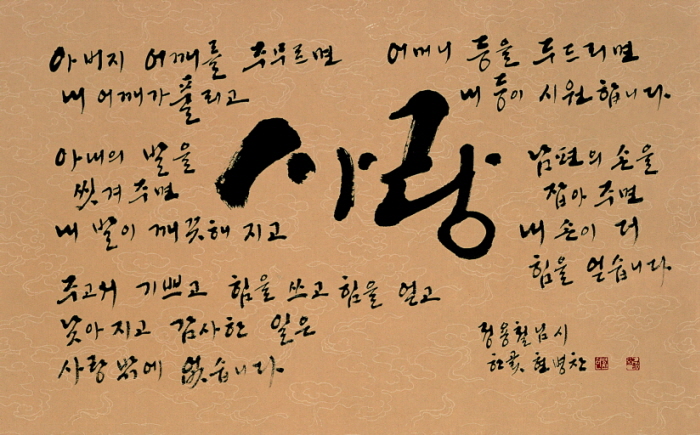 아버지 어깨를 주무르면
내 어깨가 풀리고
어머니 등을 두드리면
내 등이 시원합니다
사랑
아내의 발을
씻겨 주면
내 발이 깨끗해 지고
남편의 손을
잡아 주면
내 손이 더
힘을 얻습니다
주고서 기쁘고 힘을 쓰고 힘을 얻고
낮아 지고 감사한 일은
사랑 밖에 없습니다
정용철님 시
한글 현병찬